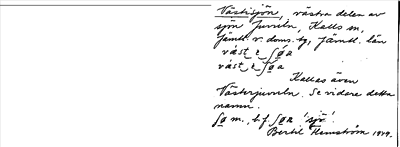 Västrisjön, västra delen av
sjön Juveln, Kalls sn,
Jämtl. v. doms. by, Jämtl. län
väst
väst
Kallas även
Västerjuveln. Se vidare detta
namn.
m., b f. 'sjö'.
Bertil Hemström 1949.